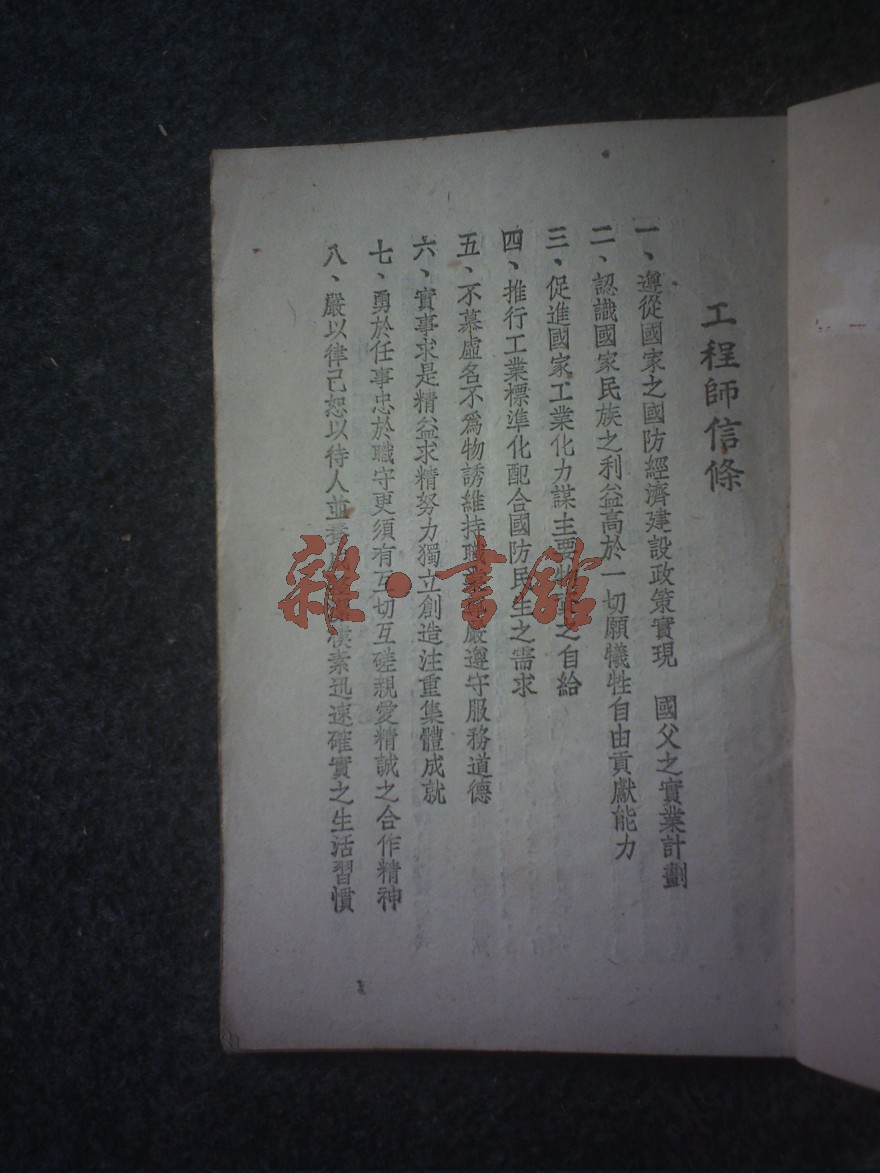 工程師信條
一、遵從國家之國防經濟建設政策實現　國父之實業計劃
二、認識國家民族之利益高於一切願犧牲自由貢獻能力
三、促進國家工業化力謀主要物資之自給
四、推行工業標準化配合國防民生之需求
五、不慕虛名不爲物誘維持職業尊嚴遵守服務道德
六、實事求是精益求精努力獨立創造注重集體成就
七、勇於任事忠於職守更須有互切互磋親愛精誠之合作精神
八、嚴以律己恕以待人並養成整潔樸素迅速確實之生活習慣
雜·書館